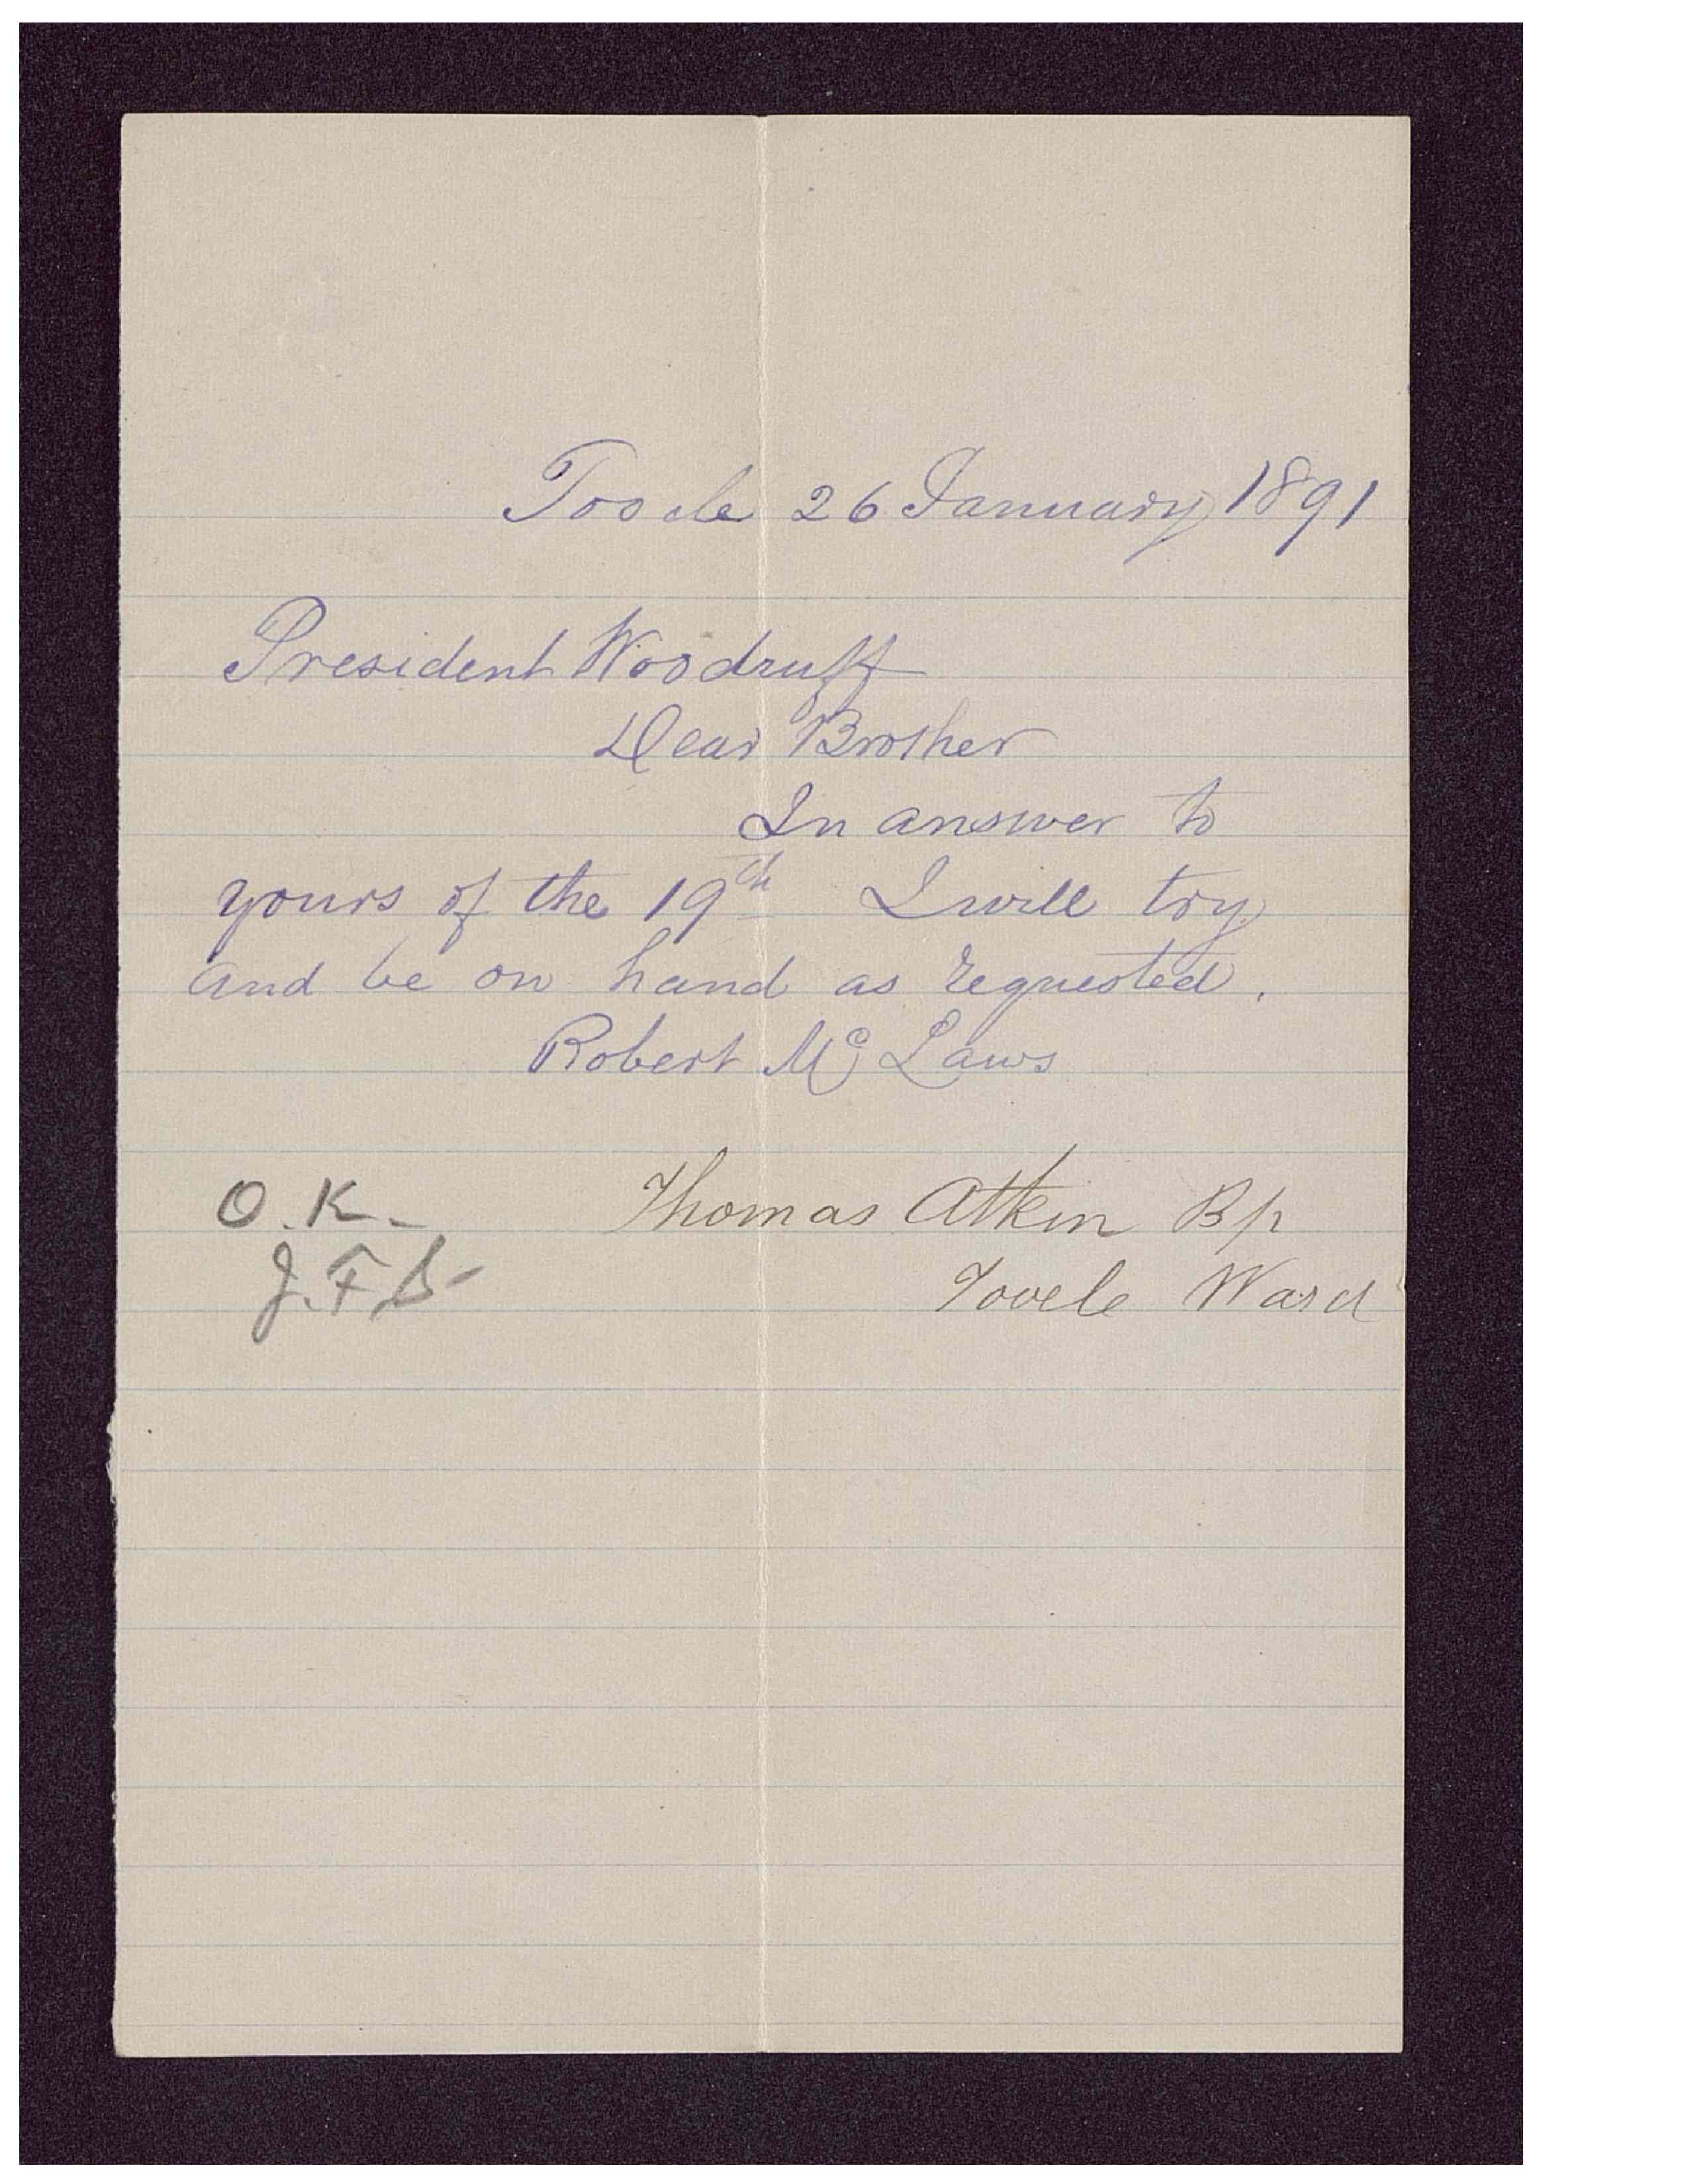 Tooele 26 January 1891
President Woodruff
Dear Brother
In answer to
yours of the 19th I will try
and be on hand as requested.
Robert Mc Laws
O.K. Thomas Atkin Bp
J.F.S. Tooele Ward